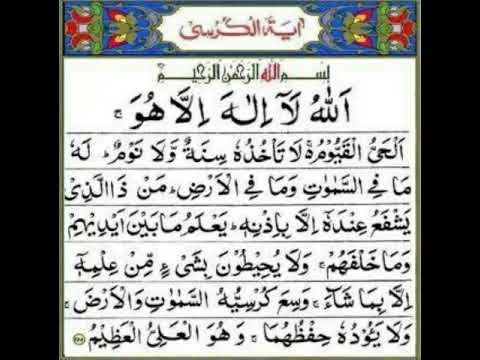 اٰیَةُ الْکُرْسِیْ
بِسْمِ اللهِ الرَّحْمٰنِ الرَّحِيْمِ
اَللهُ لَآ اِلٰهَ اِلَّا هُوَ ۚ
اَلْحَیُّ الْقَیُّوْمُ ۚ لَا تَاْخُذُهٗ سِنَةٌ وَّلَا نَوْمٌ ؕ لَهٗ
مَا فِی السَّمٰوٰتِ وَمَا فِی الْاَرْضِ ؕ مَنْ ذَا الَّذِیْ
یَشْفَعُ عِنْدَهٗۤ اِلَّا بِاِذْنِهٖ ؕ یَعْلَمُ مَا بَیْنَ اَیْدِیْهِمْ
وَمَا خَلْفَهُمْ ۚ وَلَا یُحِیْطُوْنَ بِشَیْءٍ مِّنْ عِلْمِهٖۤ
اِلَّا بِمَا شَآءَ ۚ وَسِعَ کُرْسِیُّهُ السَّمٰوٰتِ وَالْاَرْضَ ۚ
وَلَا یَـُٔوْدُهٗ حِفْظُهُمَا ۚ وَهُوَ الْعَلِیُّ الْعَظِیْمُ ۝۲۵۵